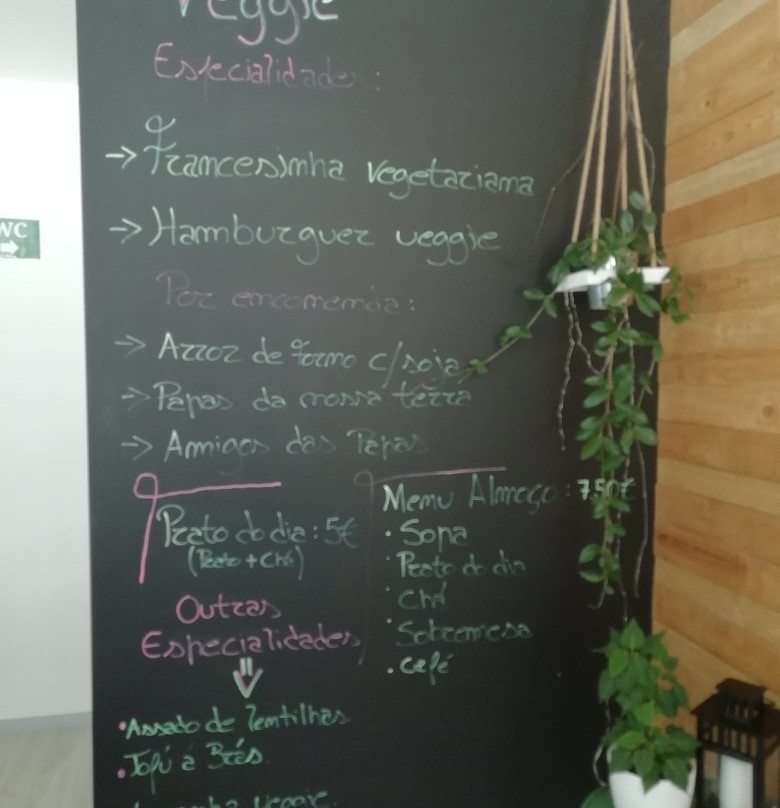 Veggie
Especialidades:
→ Francesinha vegetariana
WC
→
→ Hamburguer veggie
Por encomenda:
→ Arroz de forno c/soja
→ Papas da nossa terra
→ Amigos das Papas
Menu Almoço: 7,50€
Prato do dia: 5€
(Prato + Chá)
• Sopa
• Prato do dia
• Chá
• Sobremesa
• Café
Outras
Especialidades
• Assado de lentilhas
• Tofú à Brás
veggie